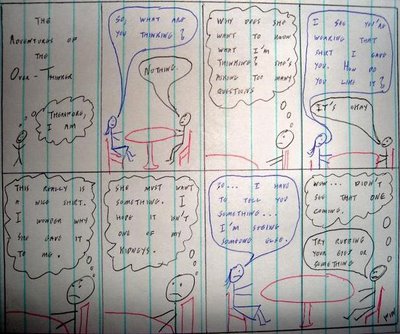 THE
ADVENTURES OF
THE
OVER-THINKER
THEREFORE,
I AM
SO, WHAT ARE
YOU THINKING?
NOTHING.
WHY DOES SHE
WANT TO KNOW
WHAT I'M
THINKING? SHE'S
ASKING TOO MANY
QUESTIONS
I SEE YOU'RE
WEARING THAT
SHIRT I GAVE
YOU. HOW DO
YOU LIKE IT?
IT'S OKAY
THIS REALLY IS
A NICE SHIRT.
I WONDER WHY
SHE GAVE IT
TO ME.
SHE MUST WANT
SOMETHING. I
HOPE IT ISN'T
ONE OF MY
KIDNEYS.
SO... I HAVE
TO TELL YOU
SOMETHING...
I'M SEEING
SOMEONE ELSE.
WOW... DIDN'T
SEE THAT ONE
COMING.
TRY RUBBING
YOUR EYES OR
SOMETHING